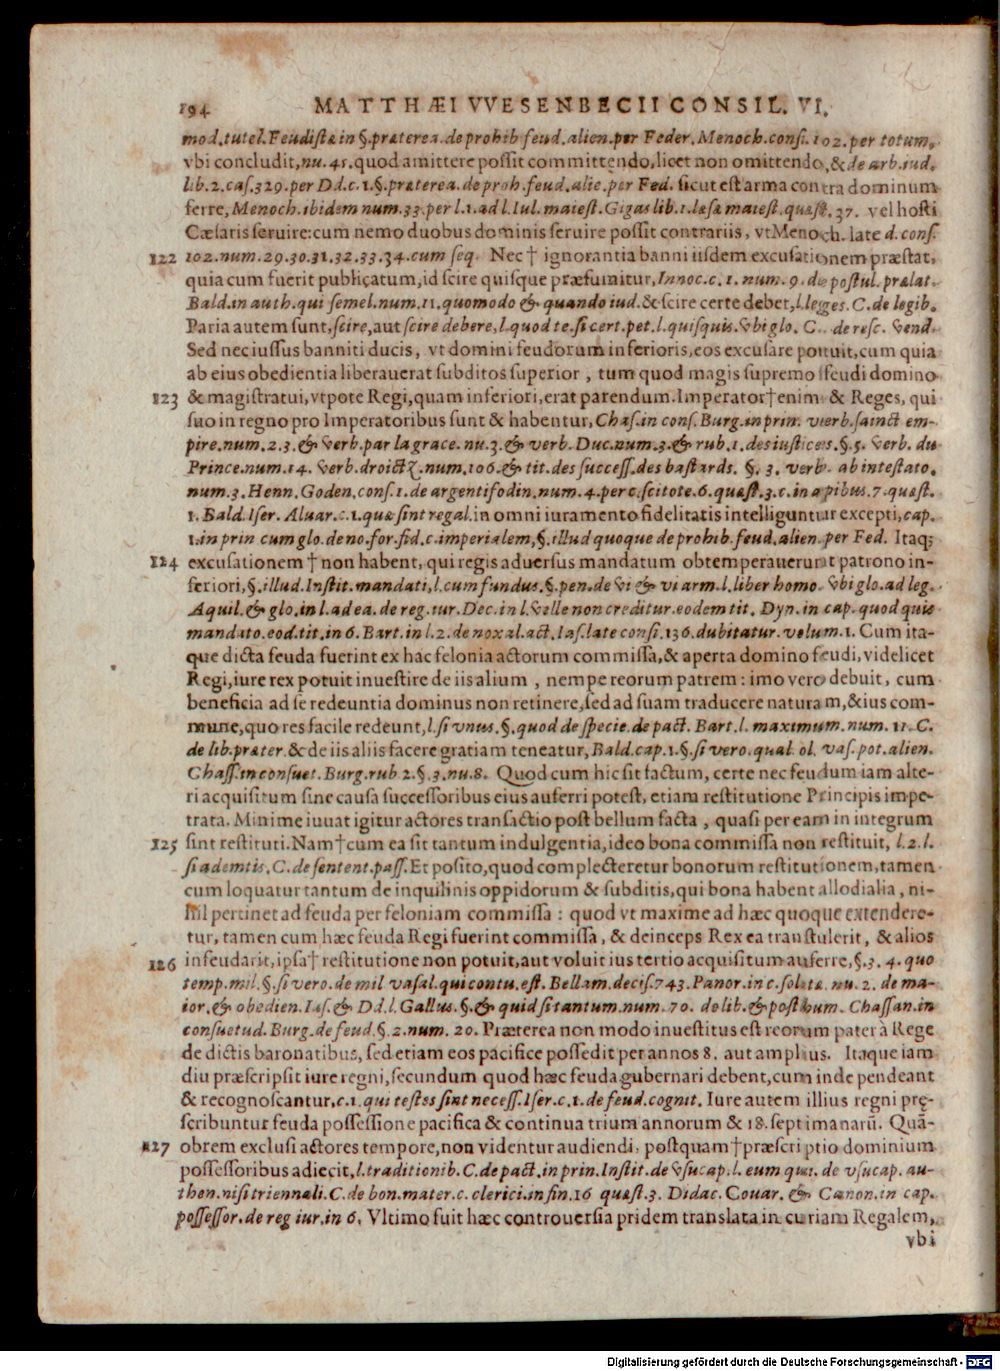 194 MATTHÆI VVESENBECII CONSIL. VI.
mod.tutel. Feudistæ in §.præterea.de prohib feud.alien.per Feder. Menoch.consi.102.per totum.
vbi concludit, nu.45. quod amittere possit committendo, licet non omittendo, & de arb.iud.
lib.2.cas.329.per Dd.c.1.§.præterea.de proh.feud.alie.per Fed. sicut est arma contra dominum
ferre, Menoch.ibidem num.33.per l.1.ad l.Iul.maiest. Gigas lib.1.læsæ maiest.quæst.37. vel hosti
Cæsaris seruire: cum nemo duobus dominis seruire possit contrariis, vt Menoch. late d.cons.
122 102.num.29.30.31.32.33.34.cum seq. Nec † ignorantia banni iisdem excusationem præstat,
quia cum fuerit publicatum, id scire quisque præsumitur, Innoc.c.1.num.9.de postul.prælat.
Bald.in auth.qui semel.num.11.quomodo & quando iud. & scire certe debet, l.leges.C.de legib.
Paria autem sunt, scire, aut scire debere, l.quod te.si cert.pet.l.quisquis.vbi glo. C. de resc. vend.
Sed nec iussus banniti ducis, vt domini feudorum inferioris, eos excusare potuit, cum quia
ab eius obedientia liberauerat subditos superior, tum quod magis supremo feudi domino
123 & magistratui, vtpote Regi, quam inferiori, erat parendum. Imperator † enim & Reges, qui
suo in regno pro Imperatoribus sunt & habentur, Chas.in cons. Burg.in prin. verb.sainct em-
pire.num.2.3.& verb.par la grace.nu.3.& verb. Duc.num.3.& rub.1.des iustices.§.5. verb. du
Prince.num.14. verb.droictz.num.106.& tit.des success.des bastards. §. 3. verb. ab intestato.
num.3. Henn. Goden.cons.1.de argentifodin.num.4.per c.scitote.6.quæst.3.c.in apibus.7.quæst.
1. Bald. Iser. Aluar.c.1.quæ sint regal. in omni iuramento fidelitatis intelliguntur excepti, cap.
1.in prin cum glo.de no.for.fid.c.imperialem,§.illud quoque de prohib.feud.alien.per Fed. Itaq;
124 excusationem † non habent, qui regis aduersus mandatum obtemperauerunt patrono in-
feriori, §.illud.Instit.mandati,l.cum fundus.§.pen.de vi & vi arm.l.liber homo. vbi glo.ad leg.
Aquil.& glo.in l.ad ea.de reg.iur. Dec.in l.velle non creditur.eodem tit. Dyn.in cap.quod quis
mandato.eod.tit.in 6. Bart.in l.2.de noxal.act. Ias.late consi.136.dubitatur.volum.1. Cum ita-
que dicta feuda fuerint ex hac felonia actorum commissa, & aperta domino feudi, videlicet
Regi, iure rex potuit inuestire de iis alium, nempe reorum patrem: imo vero debuit, cum
beneficia ad se redeuntia dominus non retinere, sed ad suam traducere naturam, & ius com-
mune, quo res facile redeunt, l.si vnus.§.quod de specie.de pact. Bart.l.maximum.num.11.C.
de lib.præter. & de iis aliis facere gratiam teneatur, Bald.cap.1.§.si vero.qual.ol. vas.pot.alien.
Chass.in consuet.Burg.rub 2.§.3.nu.8. Quod cum hic sit factum, certe nec feudum iam alte-
ri acquisitum sine causa successoribus eius auferri potest, etiam restitutione Principis impe-
trata. Minime iuuat igitur actores transactio post bellum facta, quasi per eam in integrum
125 sint restituti. Nam † cum ea sit tantum indulgentia, ideo bona commissa non restituit, l.2.l.
si ademtis.C.de sentent.pass. Et posito, quod complecteretur bonorum restitutionem, tamen
cum loquatur tantum de inquilinis oppidorum & subditis, qui bona habent allodialia, ni-
hil pertinet ad feuda per feloniam commissa: quod vt maxime ad hæc quoque extendere-
tur, tamen cum hæc feuda Regi fuerint commissa, & deinceps Rex ea transtulerit, & alios
126 infeudarit, ipsa † restitutione non potuit, aut voluit ius tertio acquisitum auferre, §.3.4. quo
temp.mil.§.si vero.de mil vasal.qui contu.est. Bellam.decis.743. Panor.in c.solitæ.nu.2. de ma-
ior.& obedien. Ias.& Dd.l. Gallus.§.& quid si tantum.num.70. de lib.& posthum. Chassan.in
consuetud. Burg.de feud.§.2.num.20. Præterea non modo inuestitus est reorum pater à Rege
de dictis baronatibus, sed etiam eos pacifice possedit per annos 8. aut amplius. Itaque iam
diu præscripsit iure regni, secundum quod hæc feuda gubernari debent, cum inde pendeant
& recognoscantur, c.1.qui testes sint necess. Iser.c.1.de feud.cognit. Iure autem illius regni prę-
scribuntur feuda possessione pacifica & continua trium annorum & 18. septimanarū. Quā-
127 obrem exclusi actores tempore, non videntur audiendi, postquam † præscriptio dominium
possessoribus adiecit, l.traditionib.C.de pact.in prin.Instit.de vsucap.l.eum qui. de vsucap. au-
then.nisi triennali.C.de bon.mater.c.clerici.in fin.16 quæst.3. Didac.Couar. & Canon.in cap.
possessor.de reg iur.in 6. Vltimo fuit hæc controuersia pridem translata in curiam Regalem,
vbi
Digitalisierung gefördert durch die Deutsche Forschungsgemeinschaft - DFG